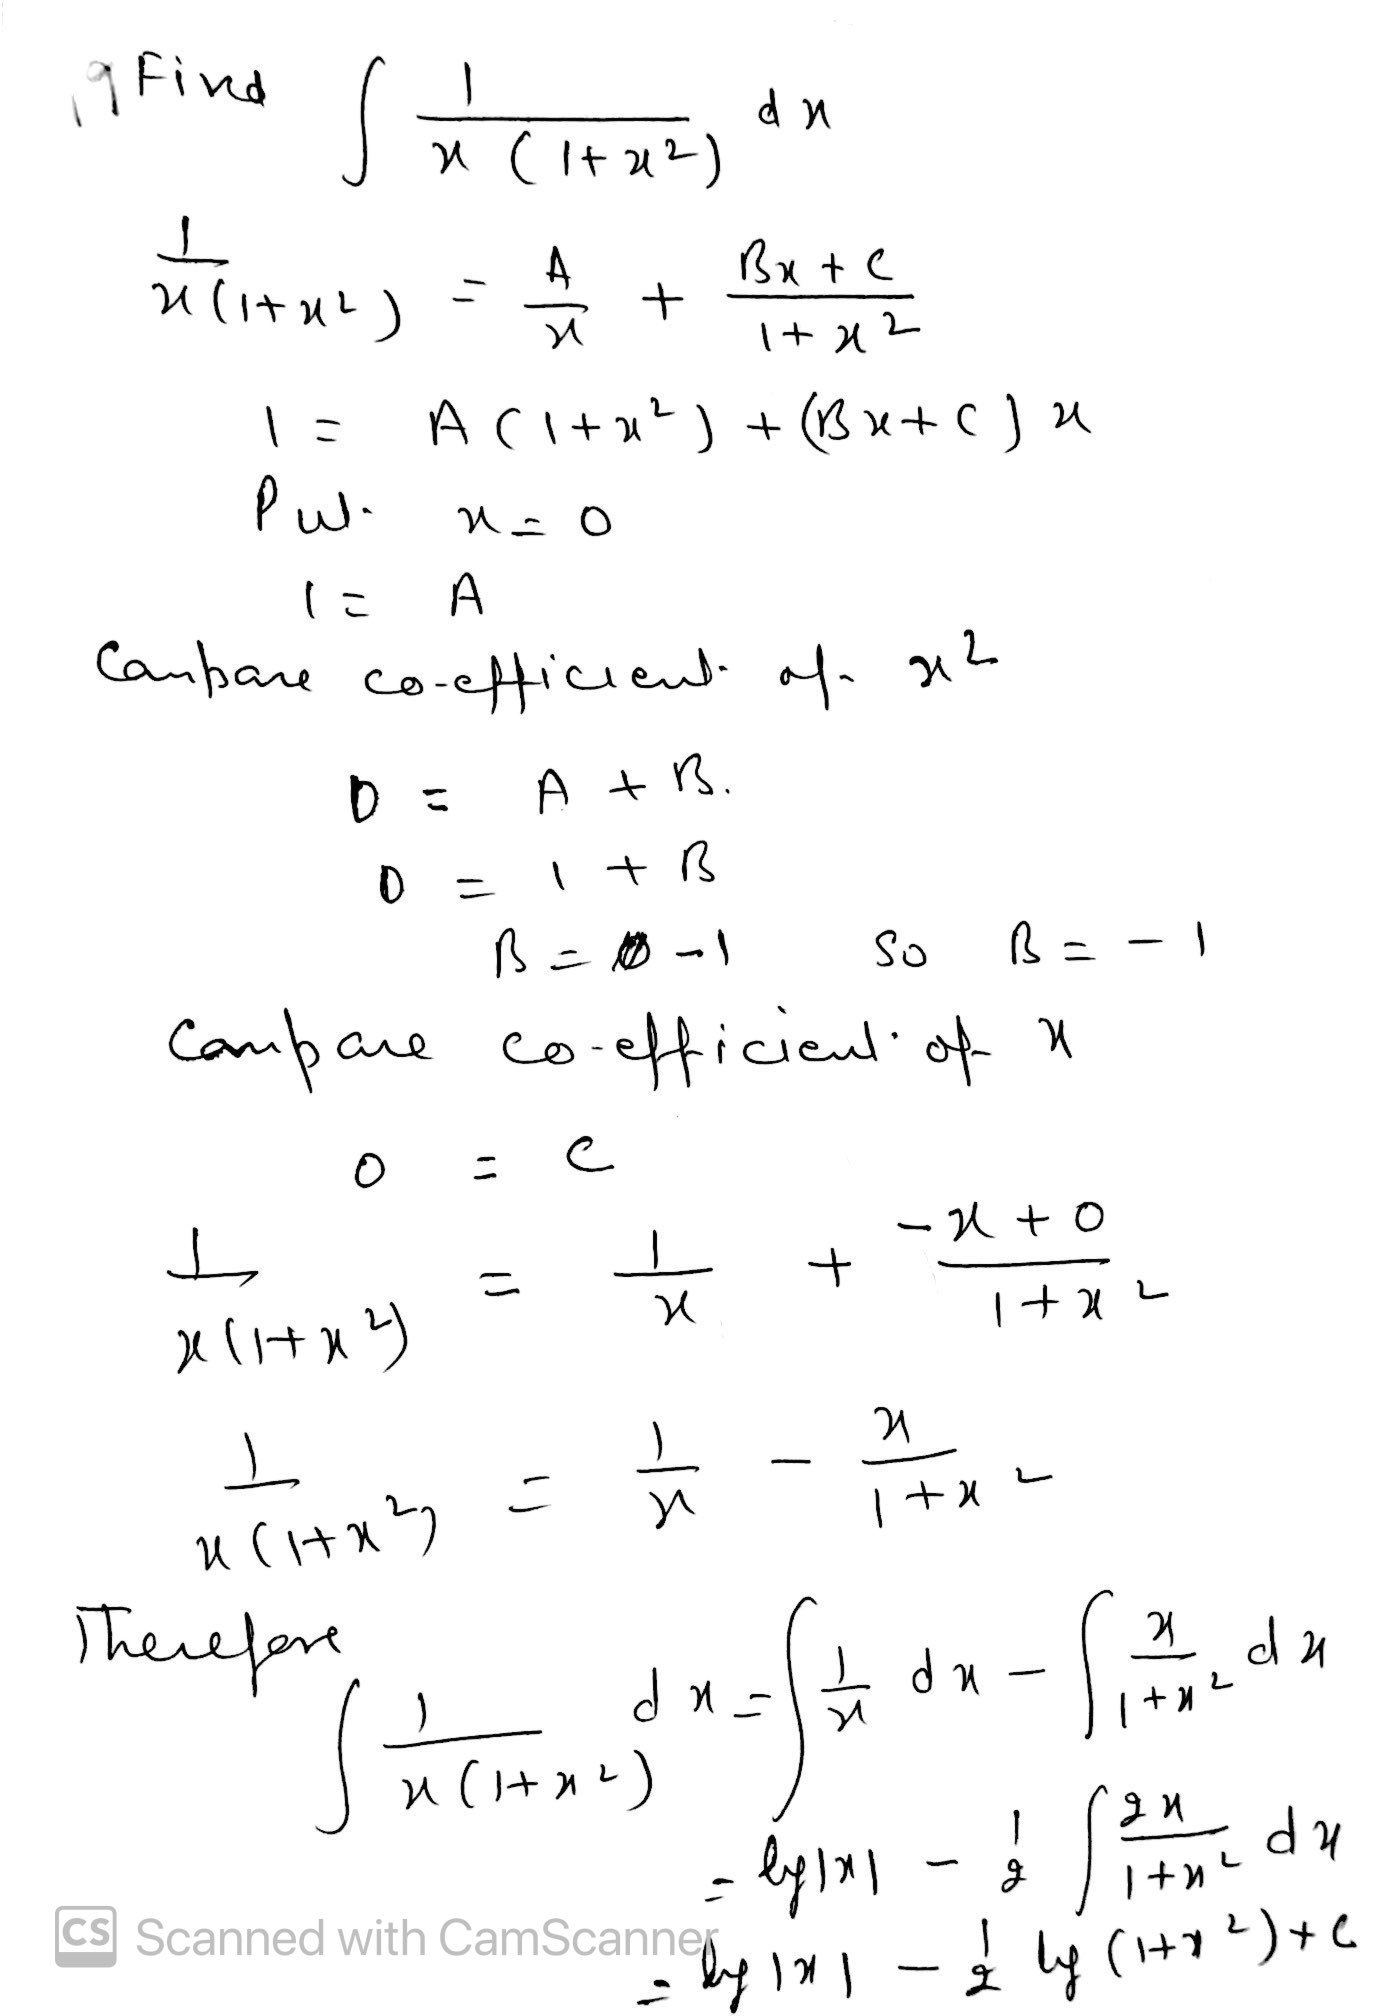 19 Find ∫ 1/(x(1+x²)) dx
1/(x(1+x²)) = A/x + (Bx+C)/(1+x²)
1 = A(1+x²) + (Bx+C)x
Put x = 0
1 = A
Compare co-efficient of x²
0 = A + B.
0 = 1 + B
B = -1 so B = -1
Compare co-efficient of x
0 = C
1/(x(1+x²)) = 1/x + (-x+0)/(1+x²)
1/(x(1+x²)) = 1/x - x/(1+x²)
Therefore
∫ 1/(x(1+x²)) dx = ∫ 1/x dx - ∫ x/(1+x²) dx
= log|x| - 1/2 ∫ 2x/(1+x²) dx
= log|x| - 1/2 log(1+x²)+C
CS Scanned with CamScanner